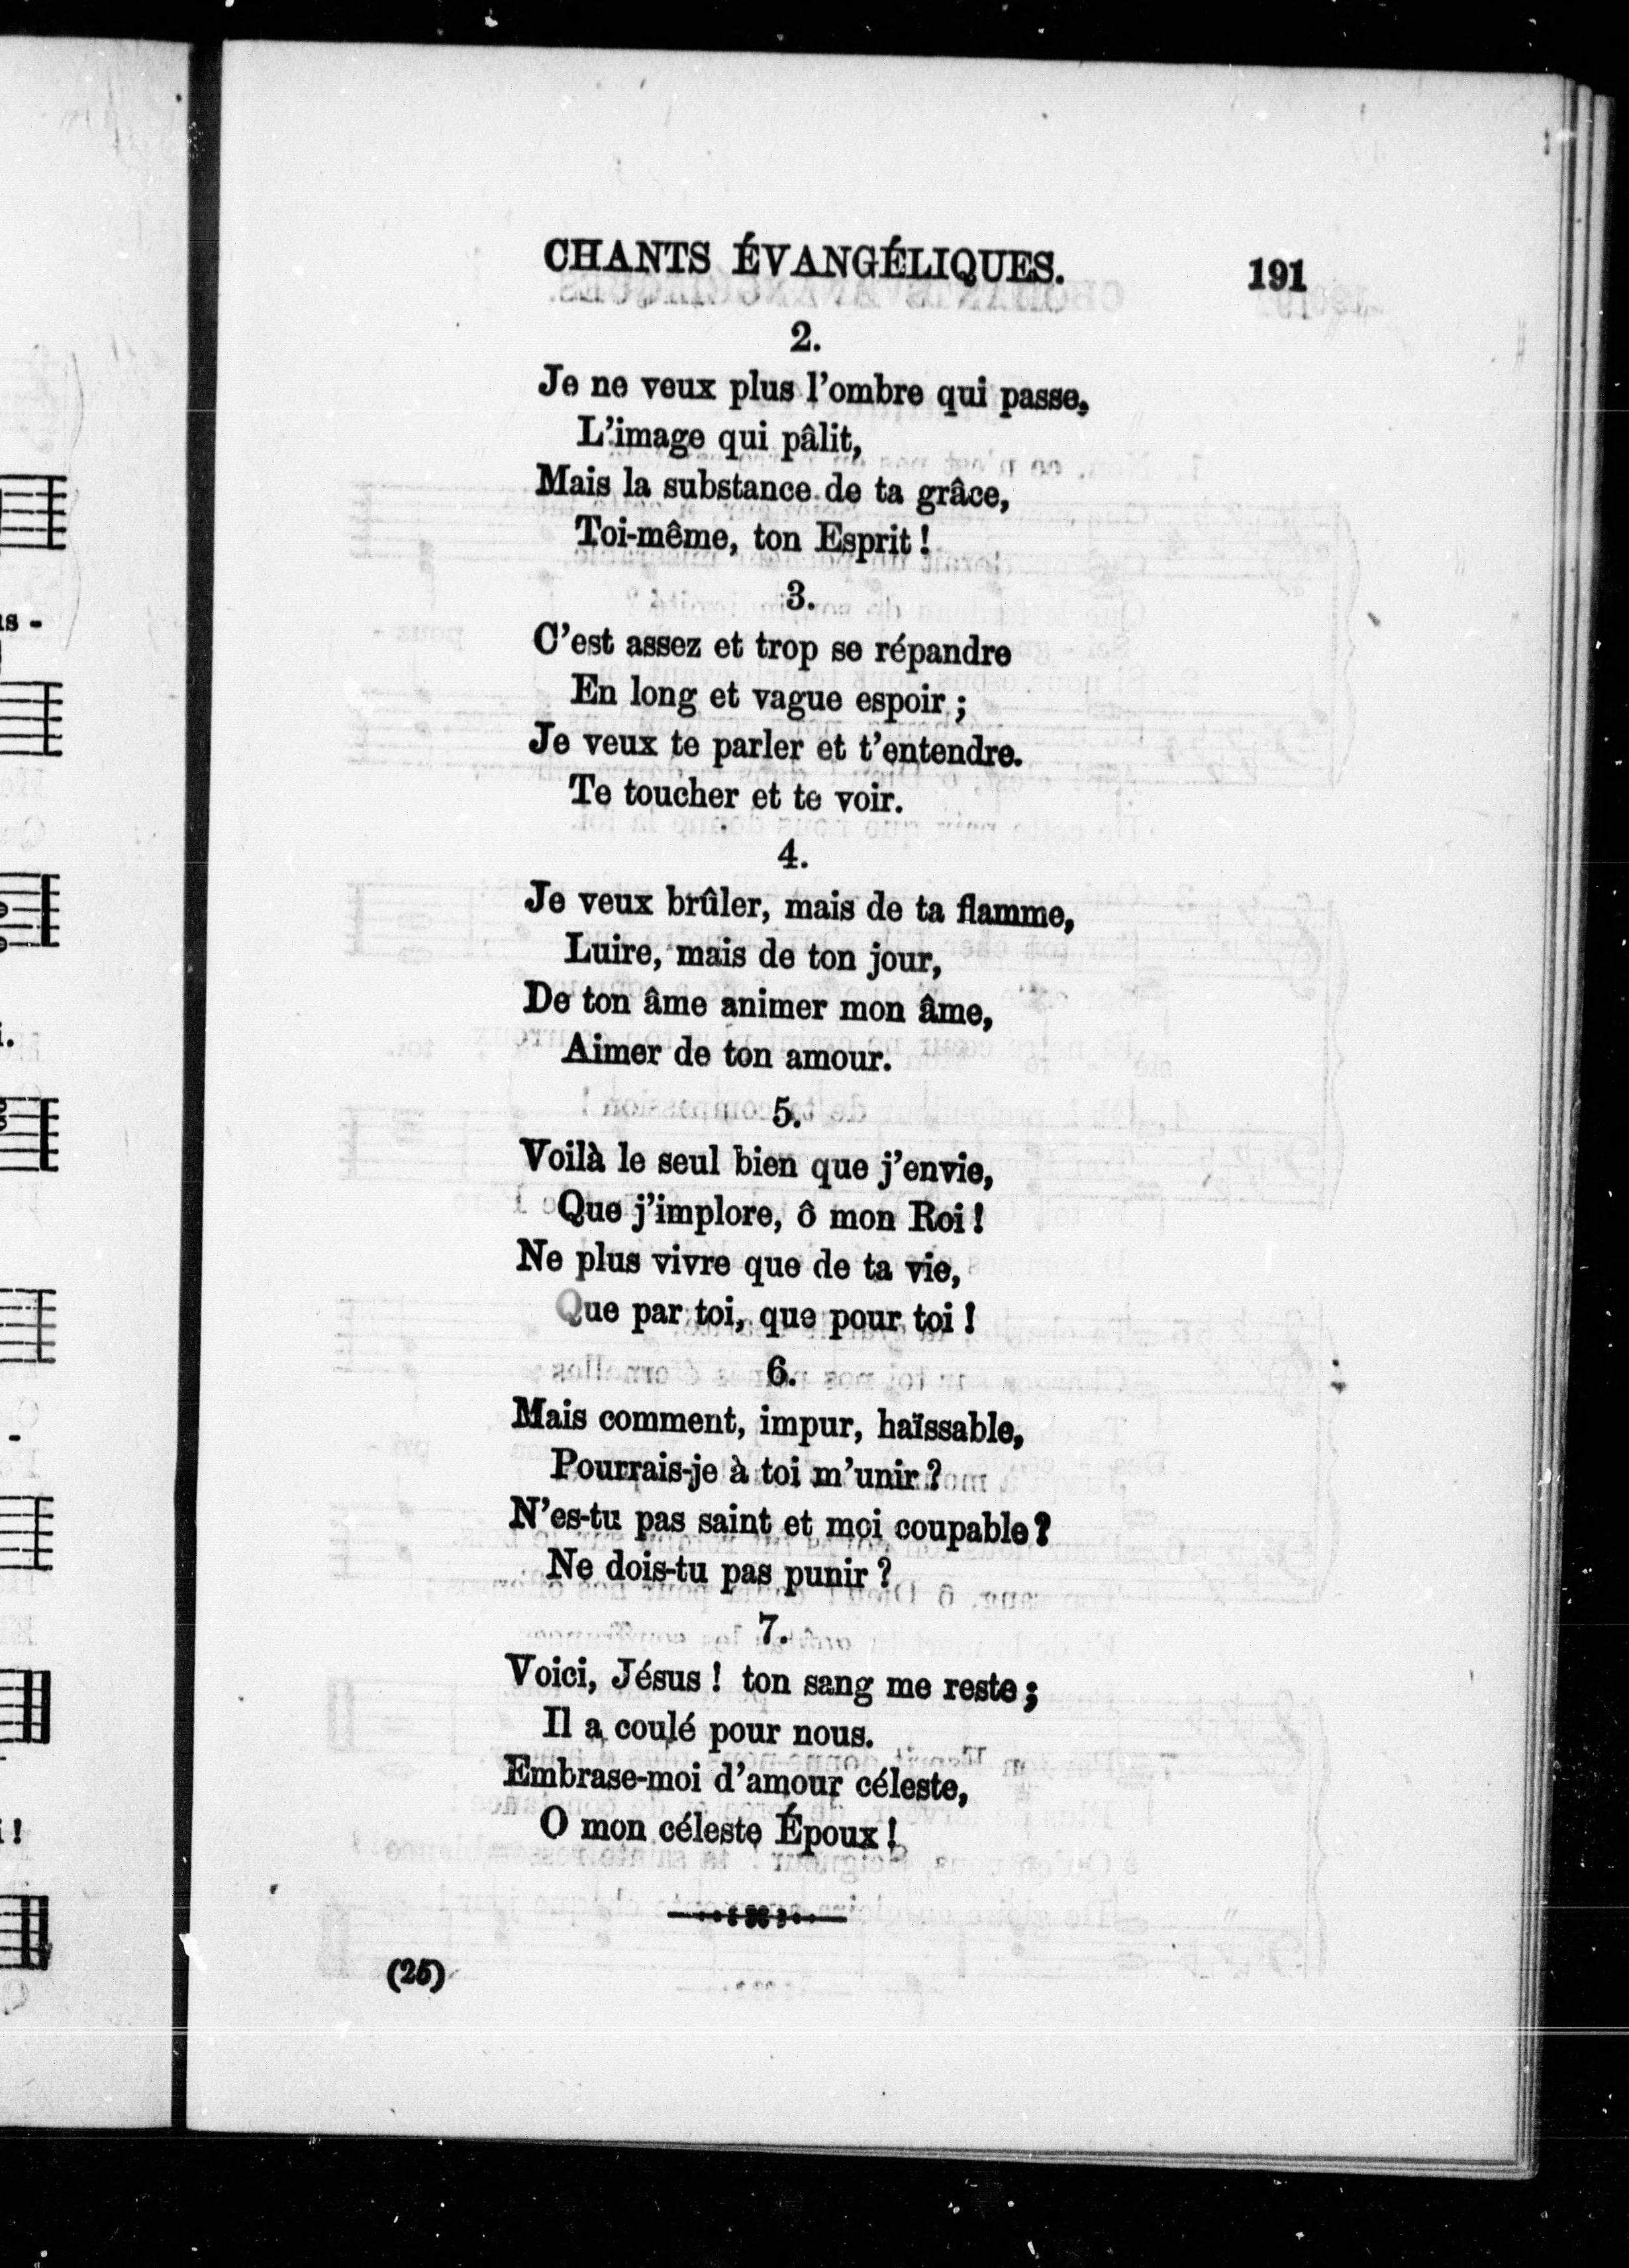 CHANTS ÉVANGÉLIQUES. 191
2.
Je ne veux plus l'ombre qui passe,
L'image qui pâlit,
Mais la substance de ta grâce,
Toi-même, ton Esprit !
3.
C'est assez et trop se répandre
En long et vague espoir ;
Je veux te parler et t'entendre.
Te toucher et te voir.
4.
Je veux brûler, mais de ta flamme,
Luire, mais de ton jour,
De ton âme animer mon âme,
Aimer de ton amour.
5.
Voilà le seul bien que j'envie,
Que j'implore, ô mon Roi !
Ne plus vivre que de ta vie,
Que par toi, que pour toi !
6.
Mais comment, impur, haïssable,
Pourrais-je à toi m'unir ?
N'es-tu pas saint et moi coupable ?
Ne dois-tu pas punir ?
7.
Voici, Jésus ! ton sang me reste ;
Il a coulé pour nous.
Embrase-moi d'amour céleste,
O mon céleste Époux !
(25)